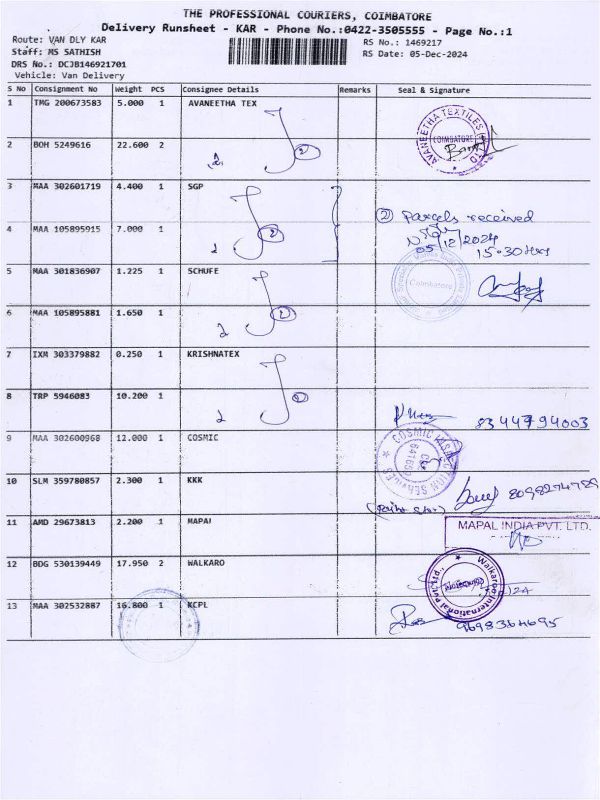 THE PROFESSIONAL COURIERS, COIMBATORE
Delivery Runsheet - KAR - Phone No.:0422-3505555 - Page No.:1
Route: VAN DLY KAR
RS No.: 1469217
Staff: MS SATHISH
RS Date: 05-Dec-2024
DRS No.: DCJB146921701
Vehicle: Van Delivery
S No Consignment No Weight PCS Consignee Details Remarks Seal & Signature
1 TMG 200673583 5.000 1 AVANEETHA TEX
AVANEETHA TEXTILES
COIMBATORE
2 BOH 5249616 22.600 2
2
3 MAA 302601719 4.400 1 SGP
2 Parcels received
4 MAA 105895915 7.000 1
2
05/12/2024
15.30 Hrs
5 MAA 301836907 1.225 1 SCHUFE
Coimbatore
6 MAA 105895881 1.650 1
2
7 IXM 303379882 0.250 1 KRISHNATEX
8 TRP 5946083 10.200 1
2
8344794003
9 MAA 302600968 12.000 1 COSMIC
COSMIC
SERVICES
10 SLM 359780857 2.300 1 KKK
8098274789
11 AMD 29673813 2.200 1 MAPAL
MAPAL INDIA PVT. LTD.
12 BDG 530139449 17.950 2 WALKARO
Walkaroo International Pvt. Ltd.,
13 MAA 302532887 16.800 1 KCPL
9698364695